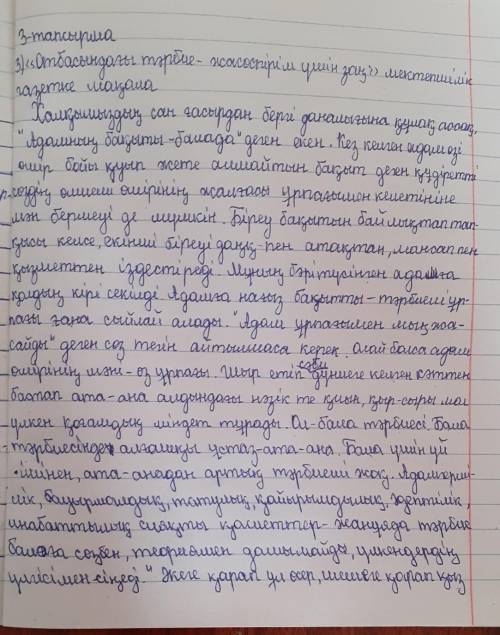 3-тапсырма
3) «Отбасындағы тәрбие - жасөспірім үшін заң» мектепішілік
газетке мақала
Халқымыздың сан ғасырдан бергі даналығына құлақ ассақ,
"Адамның бақыты - балада" деген екен. Кез келген адам өзі
өмір бойы қуып жете алмайтын бақыт деген құдіретті
сөздің өлшемі өмірінің жалғасы ұрпағымен келетініне
мән бермеуі де мүмкін. Біреу бақытын байлықтан тап-
қысы келсе, екінші біреуі даңқ-пен атақтан, мансап пен
қызметтен іздестіреді. Мұның бәрі түсінген адамға
қолдың кірі секілді. Адамға нағыз бақытты - тәрбиелі ұр-
пағы ғана сыйлай алады. "Адам ұрпағымен мың жа-
сайды" деген сөз тегін айтылмаса керек. Олай болса адам
өмірінің мәні - өз ұрпағы. Шыр етіп сәби дүниеге келген сәттен
бастап ата-ана алдындағы нәзік те қиын, қыр-сыры мол
үлкен қоғамдық міндет тұрады. Ол - бала тәрбиесі. Бала
тәрбиесіндегі алғашқы ұстаз - ата-ана. Бала үшін үй
ішінен, ата-анадан артық тәрбиеші жоқ. Адамгерші-
лік, бауырмалдық, татулық, қайырымдылық, әдептілік,
инабаттылық сияқты қасиеттер - жанұяда тәрбие
балаға сөзбен, теориямен дарымайды, үлкендердің
үлгісімен сіңеді. "Әкеге қарап ұл өсер, шешеге қарап қыз